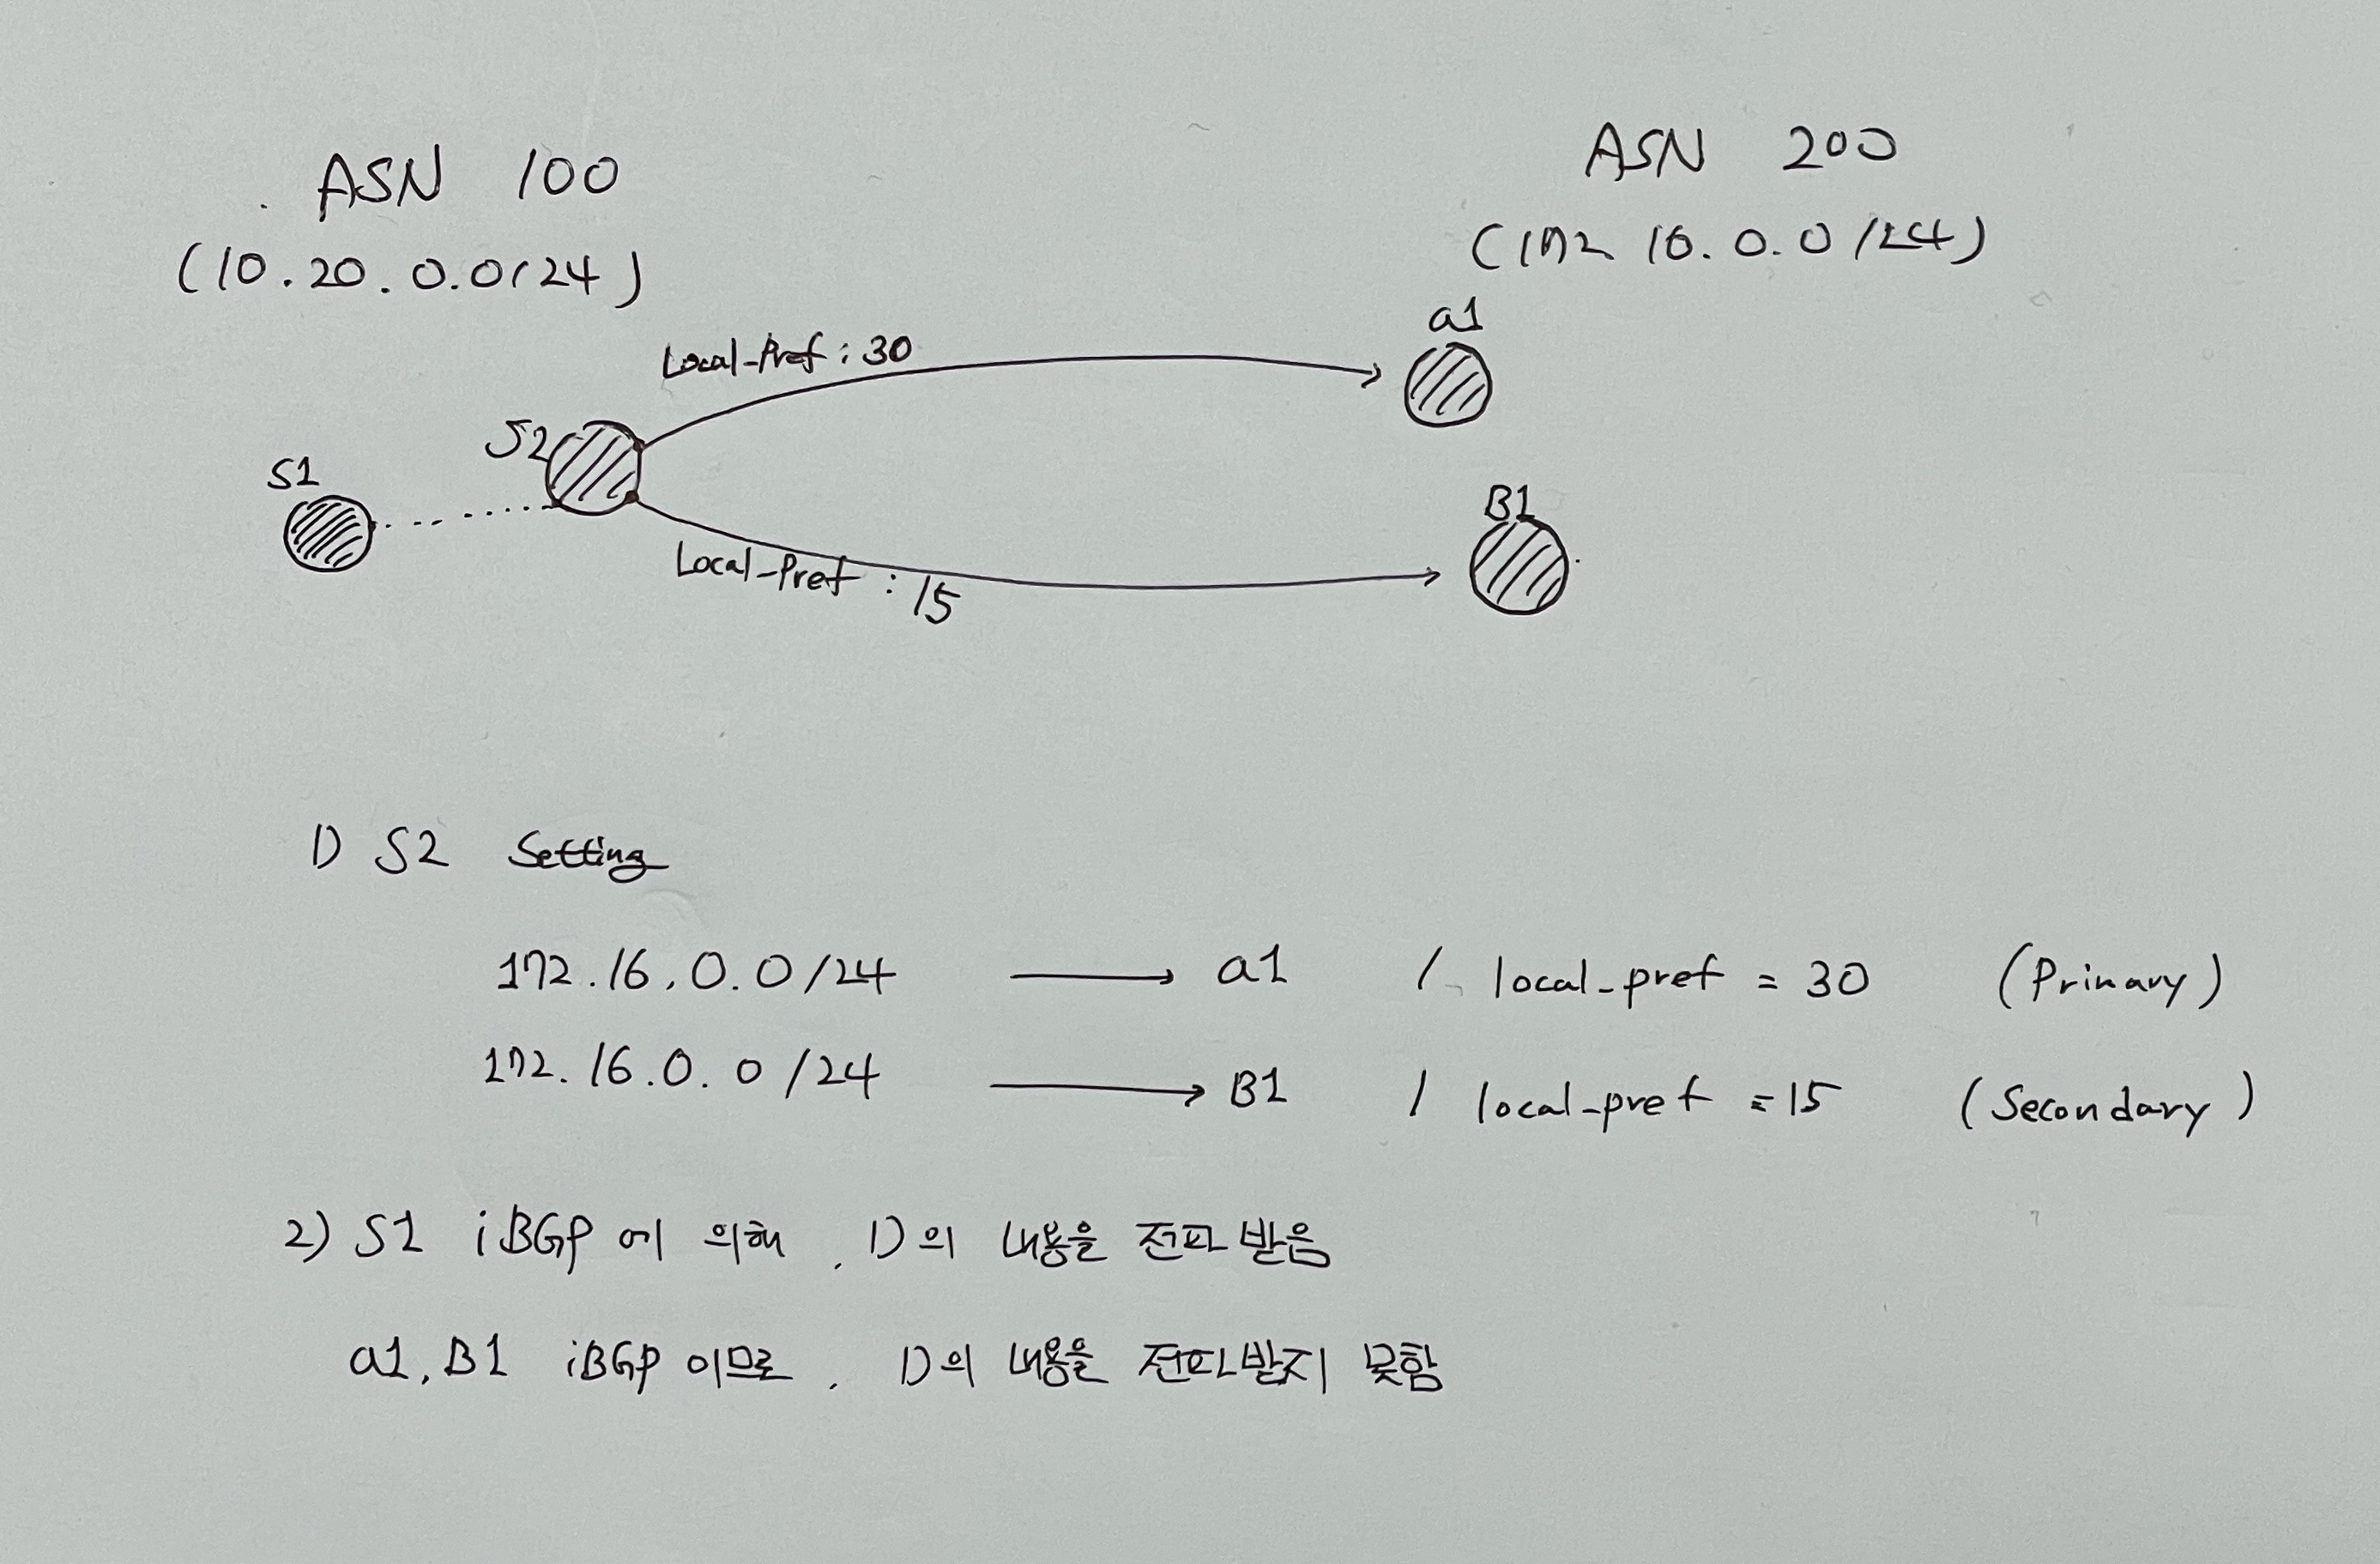 ASN 100
(10.20.0.0/24)
ASN 200
(172 16.0.0/24)
a1
Local-Pref : 30
S2
S1
B1
Local-Pref : 15
1) S2 Setting
172.16.0.0/24 → a1 / local-pref = 30 (Primary)
172.16.0.0/24 → B1 / local-pref = 15 (Secondary)
2) S1 iBGP에 의해, 1)의 내용을 전파 받음
a1, B1 iBGP 이므로, 1)의 내용을 전파받지 못함